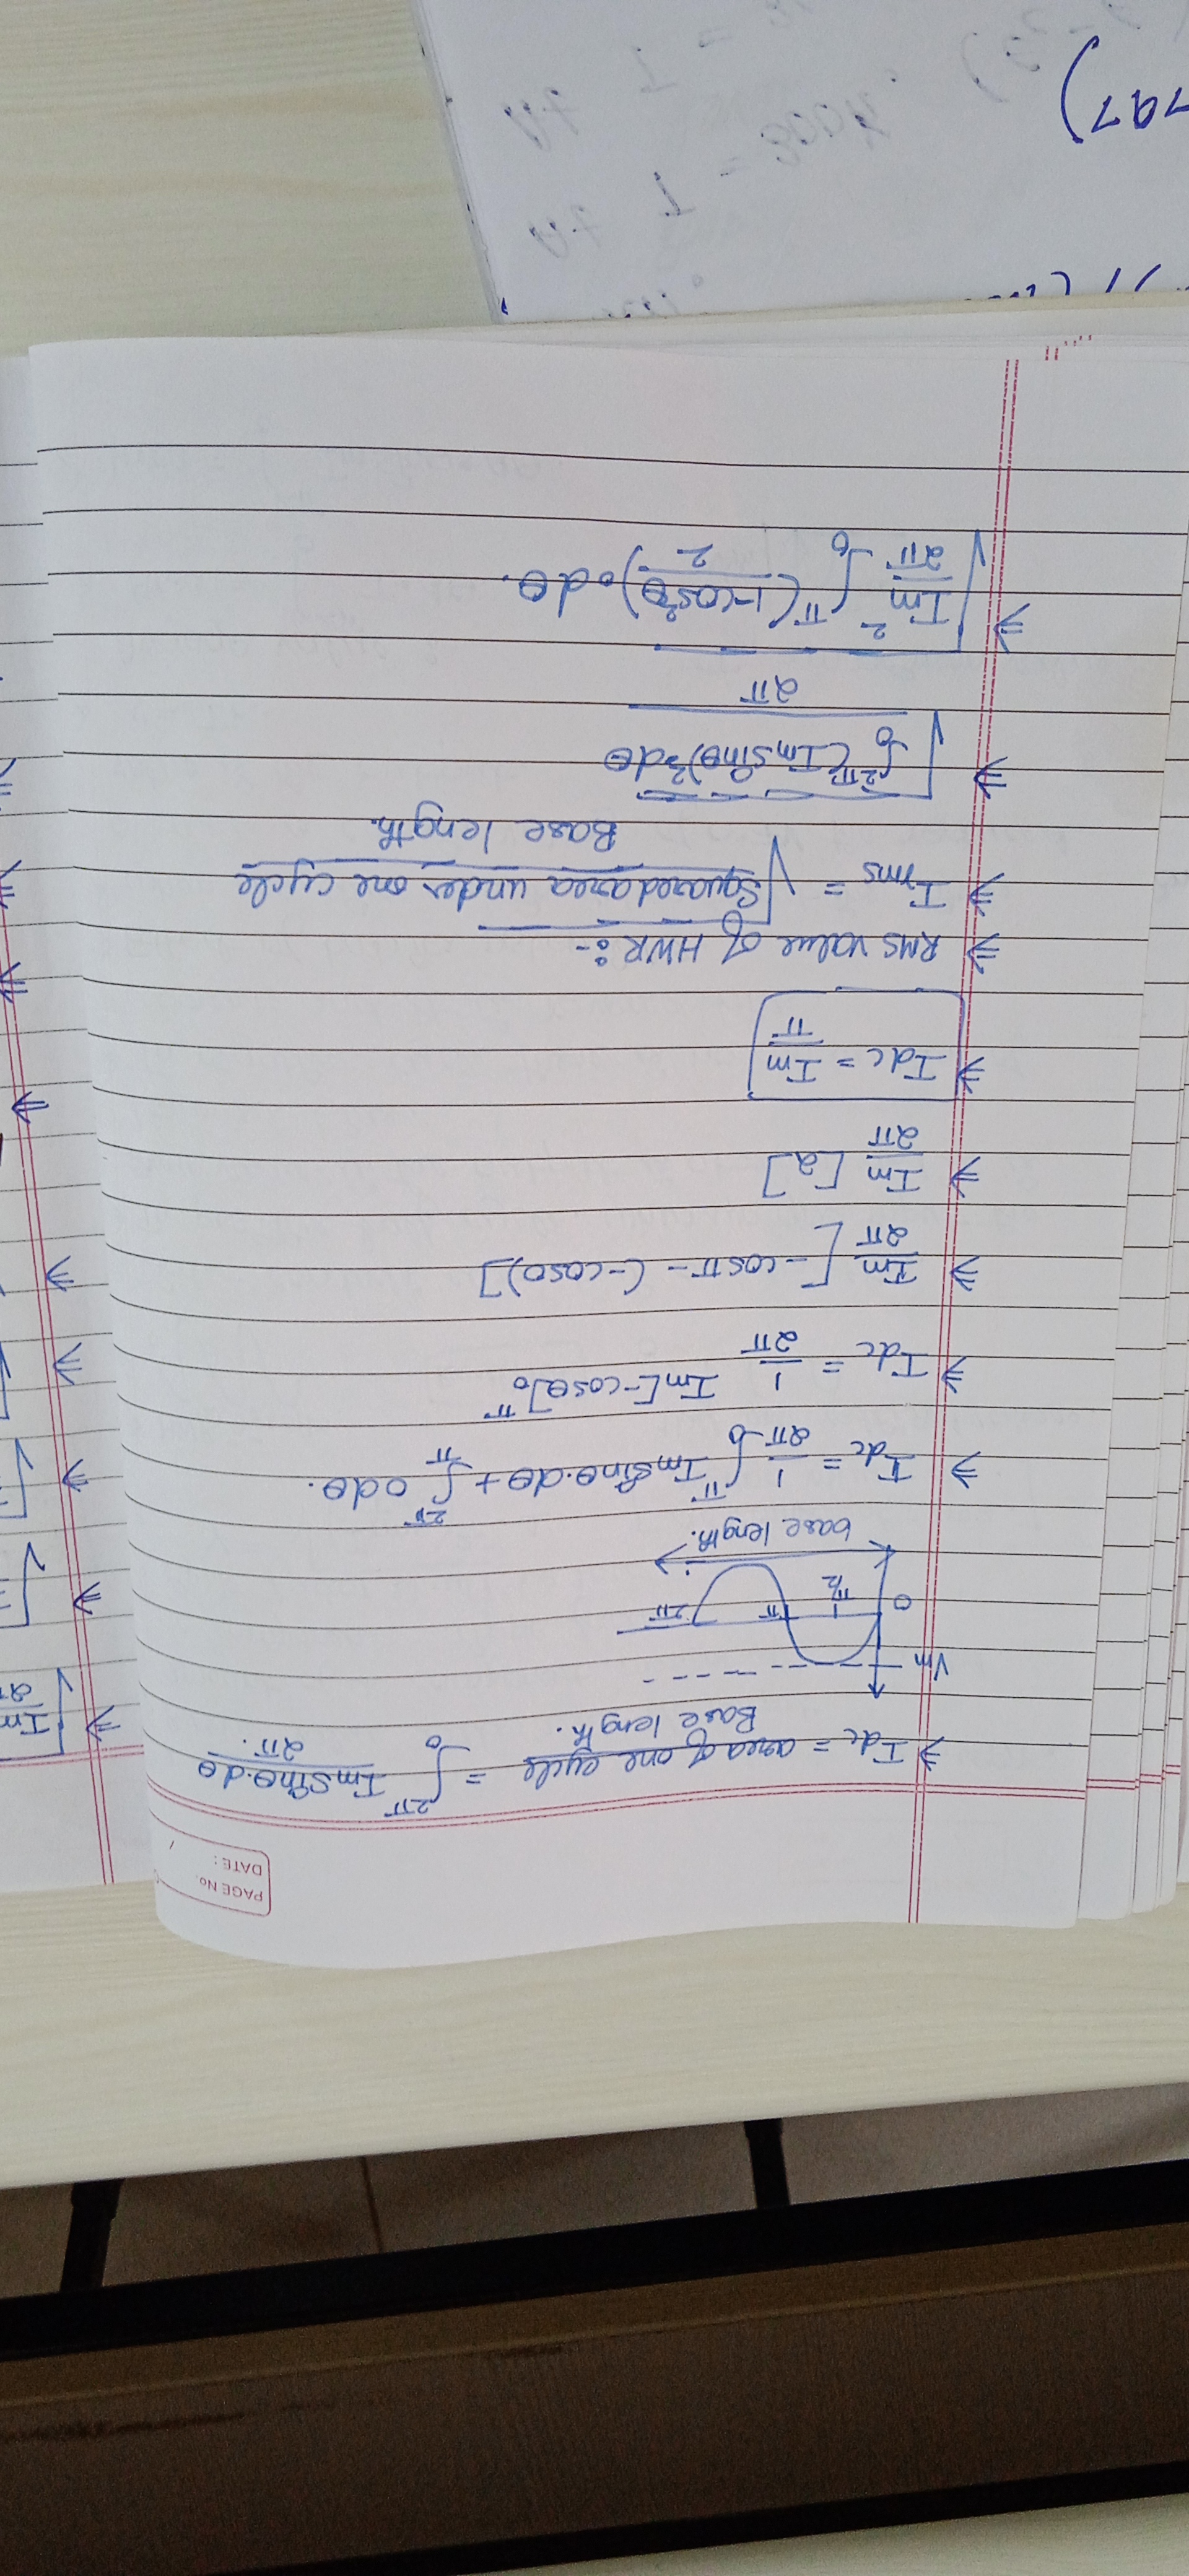 PAGE No.
DATE :
⇒ Idc = area of one cycle / Base length. = ∫₀^2π Im sinθ.dθ / 2π.
Vm
0 π/2 π 2π
base length.
⇒ Idc = 1/2π ∫₀^π Im sinθ.dθ + ∫π^2π 0dθ.
⇒ Idc = 1/2π Im[-cosθ]₀^π
⇒ Im/2π [-cosπ - (-cos0)]
⇒ Im/2π [2]
⇒ Idc = Im/π
⇒ RMS value of HWR :-
⇒ Irms = √ Squared area under one cycle / Base length.
⇒ √ ∫₀^2π (Im sinθ)² dθ / 2π
⇒ √ Im²/2π ∫₀^π (1-cos2θ / 2) . dθ.
797)